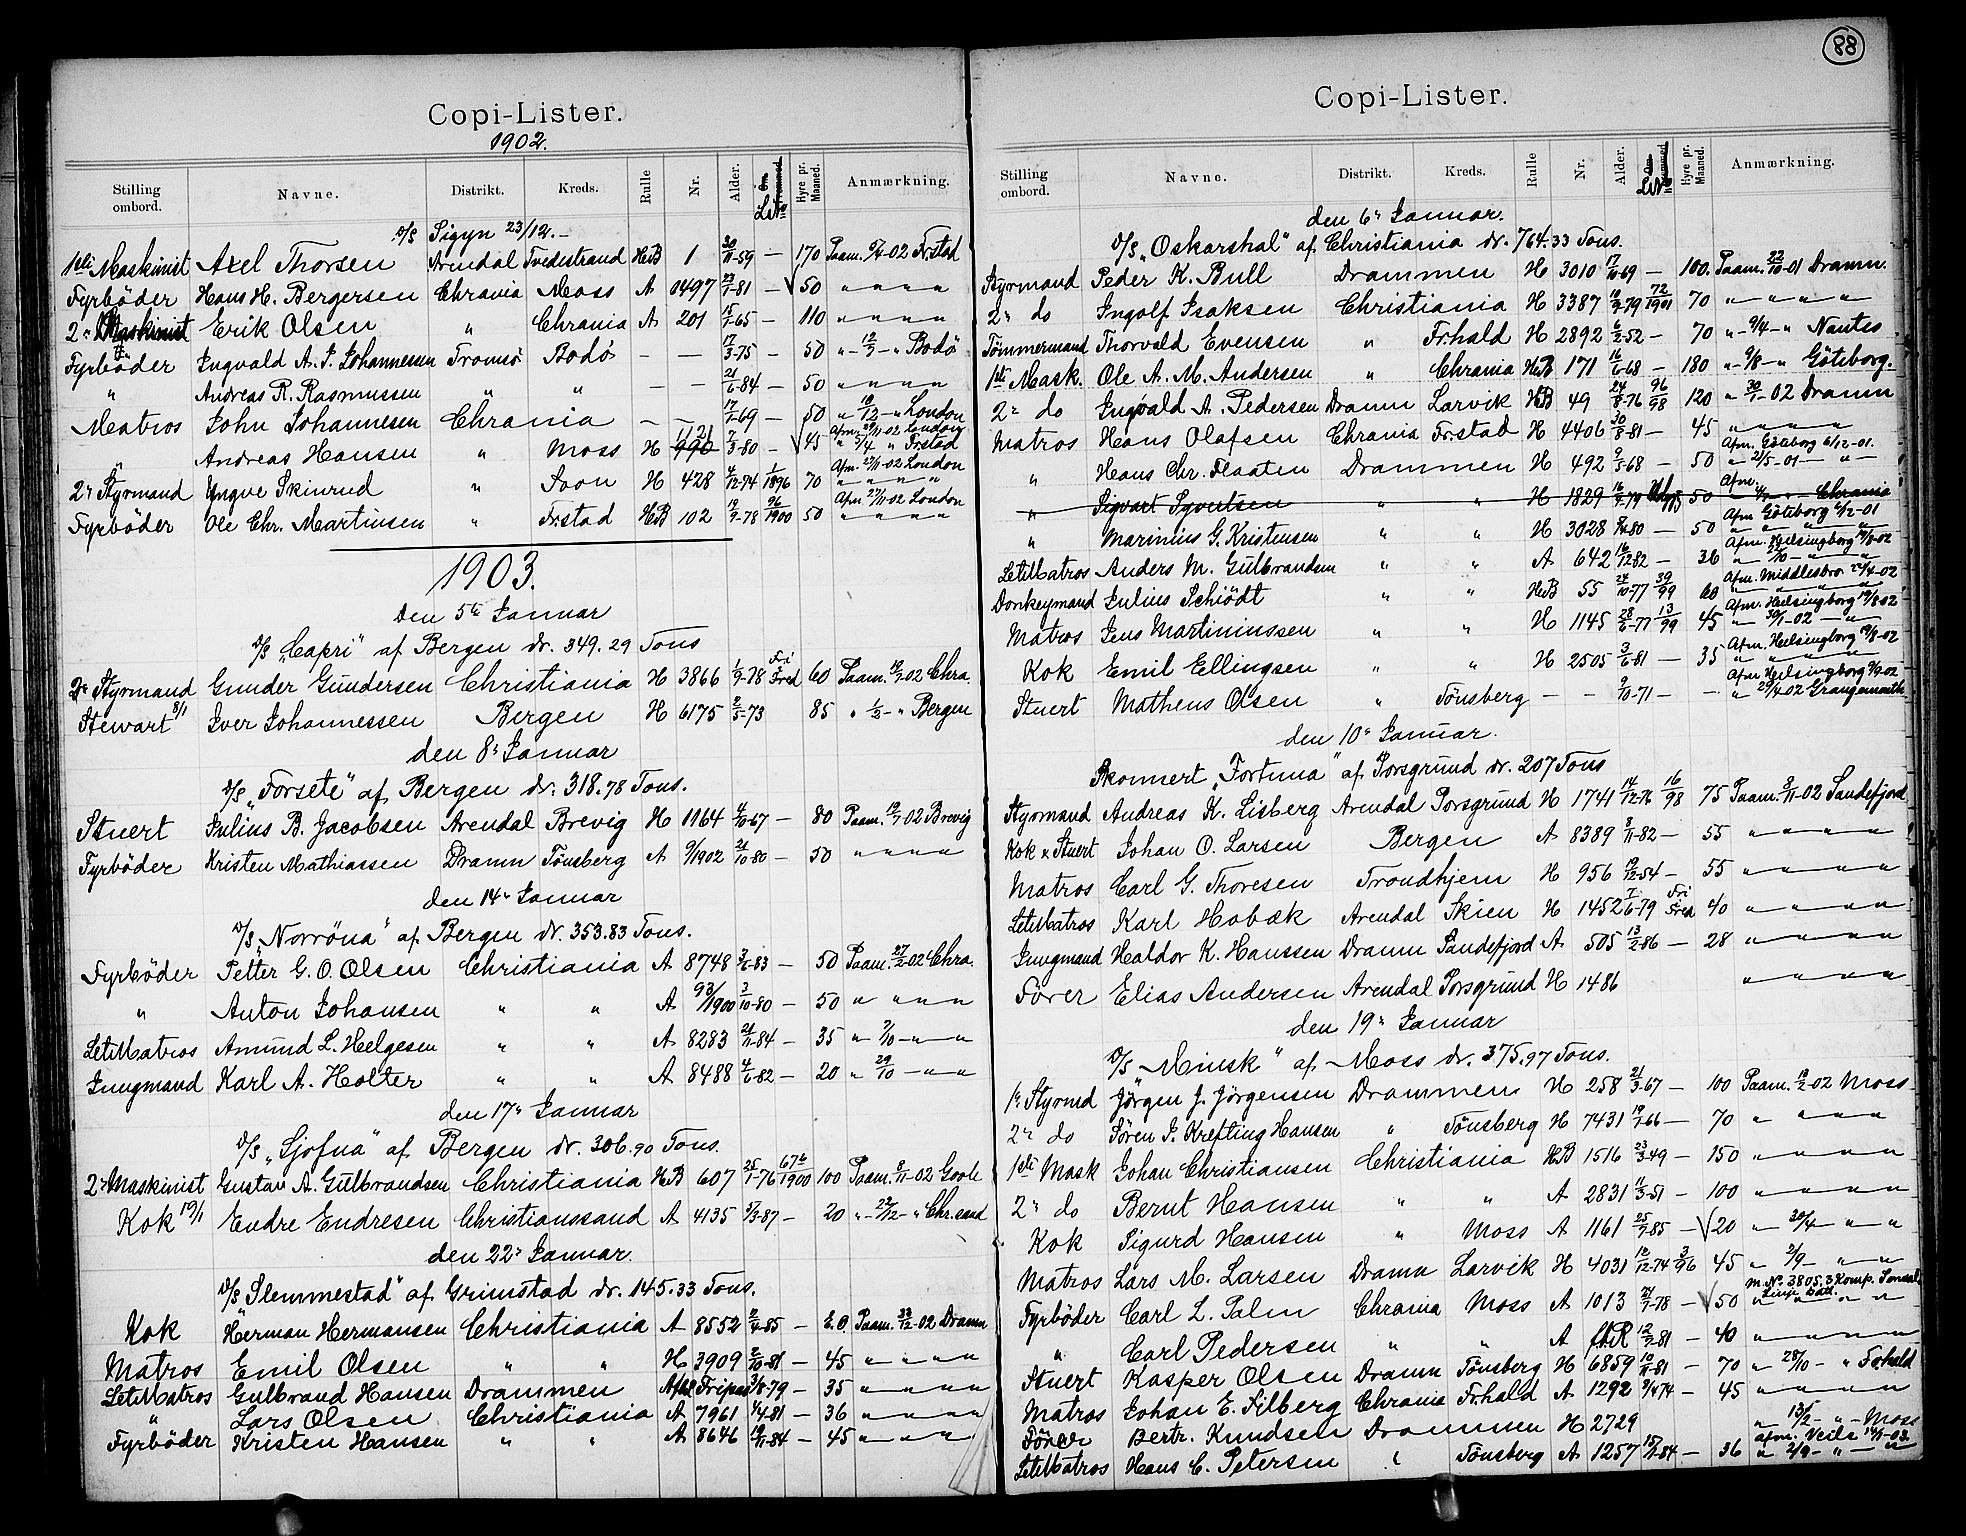 Copi-Lister.
1902.
Stilling ombord. Navne. Distrikt. Kreds. Rulle Nr. Alder. Hyre pr. Maaned. Anmærkning.
D/S Sigyn 23/12.-
1ste Maskinist Axel Thorsen Arendal Tvedestrand HB 1 30/11-59 — 170 Paam. -02 Fr.stad
Fyrbøder Hans H. Bergersen Chrania Moss A 0497 23/1-81 — 50 " " " "
2n Maskinist Erik Olsen " Chrania A 201 -65 — 110 " " " "
Fyrbøder Ingvald A. J. Johannesen Tromsö Bodö — — 17/3-75 — 50 " " Bodö
" Andreas R. Rasmussen " " — — 21/6-84 — 50 " " " "
Matros John Johannesen Chrania — — -69 — 50 " 10/12 - " London
Afm. 29/11-02 London
" Andreas Hansen " Moss H 1121 990 7/3-80 — 45 " 5/4 " Frstad
Afm. 27/11-02 London
2n Styrmand Yngve Skinrud " Soon H 428 4/12-74 1/1896 70 " " " "
Afm 27/11-02 London
Fyrbøder Ole Chr. Martinsen " Fr.stad HB 102 19/9-78 96/1900 50 " " " "
1903.
den 5te Januar
D/S „Capri" af Bergen dr. 349.29 Tons
2n Styrmand Gunder Gundersen Christiania H 3866 1/9-78 Fri Fred 60 Paam. -02 Chra.
Stewart 8/1 Iver Johannessen Bergen H 6175 2/5-73 85 " 1/2 - " Bergen
den 8n Januar
D/S „Forsete" af Bergen dr. 318.78 Tons.
Stuert Julius B. Jacobsen Arendal Brevig H 1164 4/10-67 — 80 Paam. -02 Brevig
Fyrbøder Kristen Mathiassen Dramn Tönsberg A 9/1902 21/10-80 — 50 " " " "
den 14n Januar
D/S „Norröna" af Bergen dr. 353.83 Tons.
Fyrbøder Petter G. O. Olsen Christiania A 8748 3/6-83 — 50 Paam. 27/2-02 Chra.
" Anton Johansen " " A 93/1900 3/10-80 — 50 " " " "
LetMatros Amund L. Helgesen " " A 8283 21/11-84 — 35 " 7/10 - " "
Jungmand Karl A. Holter " " A 8488 4/6-82 — 20 " 29/10 - " "
den 17n Januar
D/S „Sjofna" af Bergen dr. 306.90 Tons.
2n Maskinist Gustav A. Gulbrandsen Christiania HB 607 25/1-76 676/1900 100 Paam. 8/11-02 Goole
Kok 19/1 Endre Endresen Christianssand A 4135 5/3-87 — 20 " - 22/12 - " Chr.sand
den 22n Januar.
D/S „Slemmestad" af Grimstad dr. 145.33 Tons.
Kok Herman Hermansen Christiania A 8552 2/4-85 — E.O. Paam. 23/12-02 Dramn
Matros Emil Olsen " " H 3909 2/10-81 — 45 " " " "
LetMatros Gulbrand Hansen Drammen -79 — 35 " " " "
" Lars Olsen Christiania A 7961 1/4-81 — 36 " " " "
Fyrbøder Kristen Hansen " " A 8646 19/11-84 — 45 " " " "
88
Copi-Lister.
Stilling ombord. Navne. Distrikt. Kreds. Rulle Nr. Alder. Hyre pr. Maaned. Anmærkning.
den 6n Januar.
D/S „Oskarshal" af Christiania dr. 764.33 Tons.
Styrmand Peder K. Bull Drammen H 3010 17/10-69 — 100. Paam. 22/10-01 Dramn.
2n do Ingolf Isaksen Christiania H 3387 10/9-79 72/1901 70 " " " "
Tömmermand Thorvald Evensen " Fr.hald H 2892 6/2-52 — 70 " - 9/4 - " Nantes
1ste Mask. Ole A. M. Andersen " Chrania HB 171 16/6-68 — 180 " - 9/8 - " Göteborg.
2n do Ingvald A. Pedersen Dramn Larvik HB 49 24/8-76 96/98 120 " 30/1-02 Dramn
Matros Hans Olafsen Chrania Fr.stad H 4406 30/8-81 — 45 " " " "
Afm. Göteborg 6/12-01.
" Hans Chr. Flaaten Drammen H 492 9/5-68 — 50 " 21/5-01 - " -
Afm.
" Sigvart Syvertsen " " H 1829 16/9-79 50 Chrania
Afm Göteborg 6/12-01
" Marinius G. Kristensen " " H 3028 -80 — 50 " " " "
Afm. Helsingborg 19/8-02
LetMatros Anders M. Gulbrandsen " " A 642 16/12-82 — 36
Afm. Middlesbro 24/4-02
Donkeymand Julius Schiödt " " HB 55 24/10-77 39/99 60 " " " "
Afm. Helsingborg 19/8-02
Matros Jens Martiniussen " " H 1145 28/6-77 13/99 45 " 30/1-02 - "
Afm. Helsingborg 19/8-02
Kok Emil Ellingsen " " H 2505 3/6-81 — 35 " " " "
Afm Helsingborg 2/9-02
Stuert Matheus Olsen " Tönsberg — — 9/10-71 — — " 29/4-02 Grangemouth
den 10n Januar.
Skonnert „Fortuna" af Porsgrund dr. 207 Tons
Styrmand Andreas K. Lisberg Arendal Porsgrund H 1741 14/12-76 16/98 75 Paam. 8/11-02 Sandefjord
Kok & Stuert Johan O. Larsen Bergen A 8389 8/11-82 — 55 " " " "
Matros Carl G. Thoresen Trondhjem H 956 19/12-54 — 55 " " " "
LetMatros Karl Hobæk Arendal Skien H 1452 7/6-79 Fri Fred 40 " " " "
Jungmand Haldor K. Hanssen Dramn Sandefjord A 505 13/2-86 — 28 " " " "
Förer Elias Andersen Arendal Porsgrund H 1486 " " " "
den 19n Januar
D/S „Minsk" af Moss dr. 375.97 Tons.
1n Styrmd Jörgen J. Jörgensen Drammen H 258 21/3-67 — 100 Paam. 18/2-02 Moss
2n do Sören J. Krefting Hansen " Tönsberg H 7431 -66 — 70 " " " "
1ste Mask Johan Christiansen Christiania HB 1516 23/3-49 — 150 " " " "
2n do Bernt Hansen " " A 2831 11/5-51 — 100 " " " "
Kok Sigurd Hansen " Moss A 1161 25/7-85 — 20 " 30/4 - " "
Matros Lars M. Larsen Dramn Larvik H 4031 12/12-74 3/96 45 " 2/9 - " "
M. No. 3805. 3 Komp. Smaal. Linje Batt.
Fyrbøder Carl L. Palm Chrania Moss A 1013 21/7-78 — 50 " " " "
" Carl Pedersen " " A f.t.R 12/9-81 — 40 " " " "
Stuert Kasper Olsen Dramn Tönsberg H 6859 10/11-81 — 70 " 28/10 - " Fr.hald
Matros Johan E. Silberg Chrania Fr.hald A 1292 9/11-74 — 45 " " " "
Förer Bertr. Knudsen Drammen H 2729 " 13/2 - " - Moss
afm. Veile 14/1-03.
LetMatros Hans C. Petersen " Tönsberg A 1257 15/1-84 — 36 " 2/9 - " - "